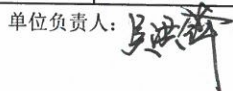 单位负责人：吴洪锋